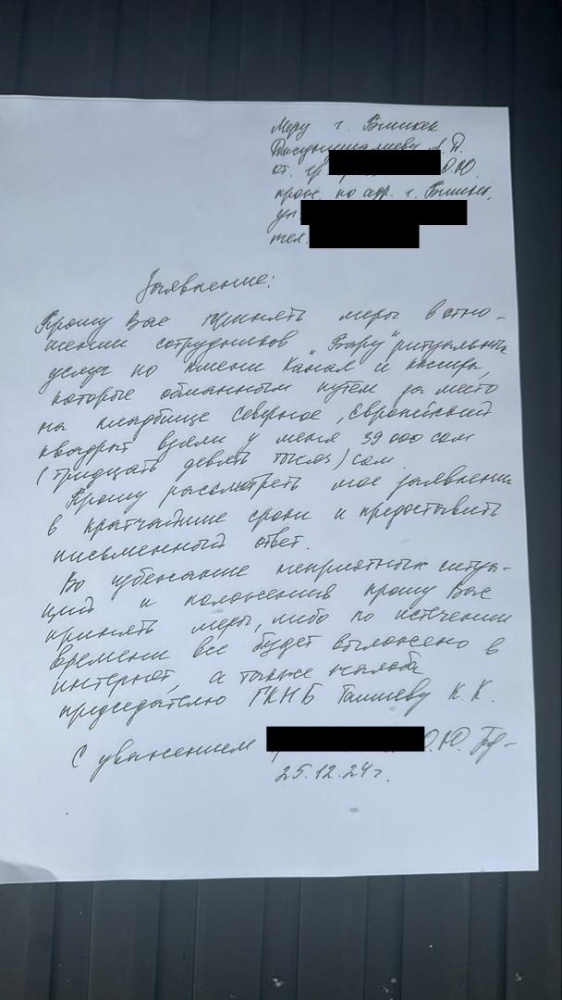 Мэру г. Бишкек
Джунушалиеву А.Т.
от. гр. О.Ю.
прож. по адр. г. Бишкек,
ул.
тел.
Заявление:
Прошу Вас принять меры в отно-
шении сотрудников "Бару" ритуальных
услуг по имени Канал и кассира,
которые обманным путем за место
на кладбище Северное, Европейский
квадрат взяли у меня 39 000 сом
(тридцать девять тысяч) сом
Прошу рассмотреть мое заявление
в кратчайшие сроки и предоставить
письменный ответ.
Во избежание неприятных ситуа-
ций и положения прошу Вас
принять меры, либо по истечении
времени все будет выложено в
интернет, а также жалоба
председателю ГКНБ Ташиеву К.К.
С уважением О.Ю.
25.12.24г.